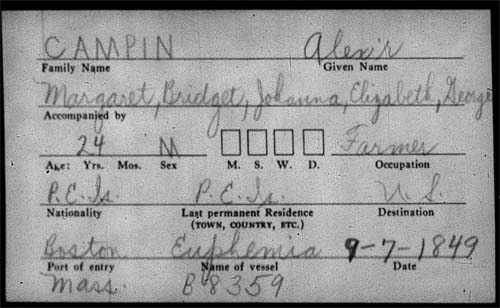 CAMPIN Alex'r
Family Name Given Name
Margaret, Bridget, Johanna, Elizabeth, George
Accompanied by
24 M Farmer
Age: Yrs. Mos. Sex M. S. W. D. Occupation
P.E.Is. P.E.Is. U.S.
Nationality Last permanent Residence Destination
(TOWN, COUNTRY, ETC.)
Boston Euphemia 9-7-1849
Port of entry Name of vessel Date
Mass. B8359